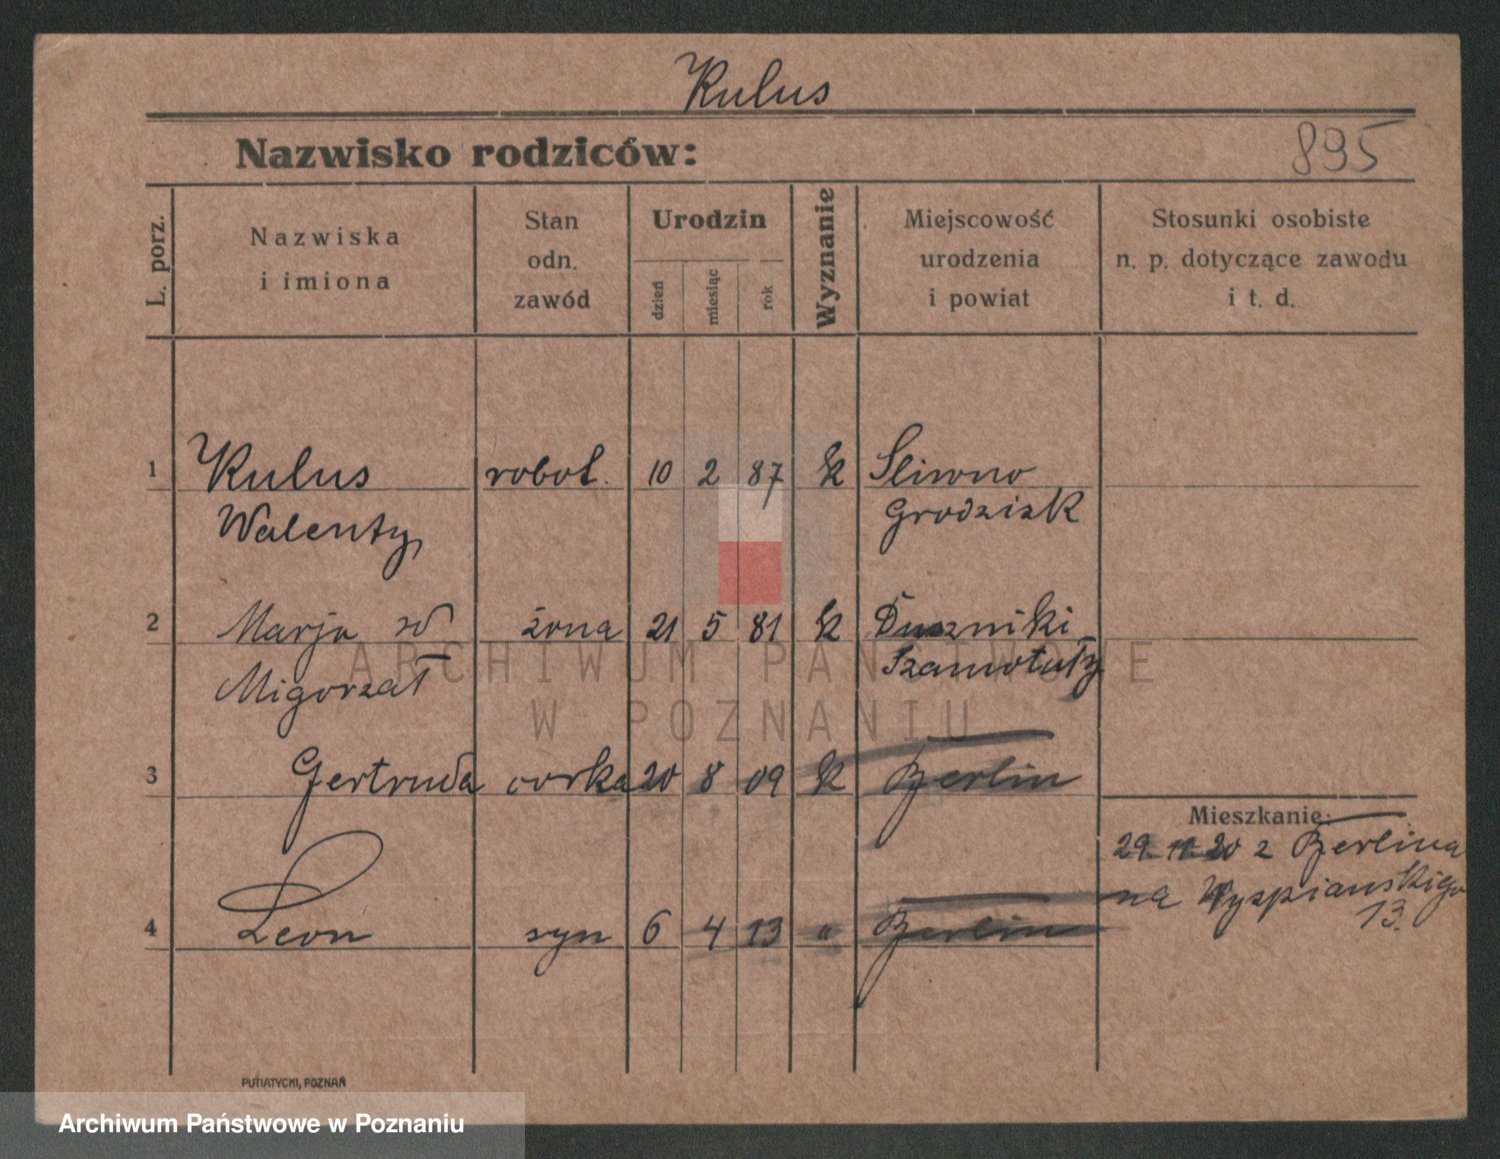 Kulus
Nazwisko rodziców:
895
L. porz.
Nazwiska
i imiona
Stan
odn.
zawód
Urodzin
dzień
miesiąc
rok
Wyznanie
Miejscowość
urodzenia
i powiat
Stosunki osobiste
n. p. dotyczące zawodu
i t. d.
1 Kulus robot. 10 2 87 k Sliwno
Walenty Grodzisk
2 Marja żona 21 5 81 k Duszniki
Migorzał Szamotuły
3 Gertruda corka 20 8 09 k Berlin
Mieszkanie:
29. 11. 20 z Berlina
na Wyspianskigo
13.
4 Leon syn 6 4 13 " Berlin
PUTIATYCKI, POZNAŃ
ARCHIWUM PAŃSTWOWE
W POZNANIU
Archiwum Państwowe w Poznaniu